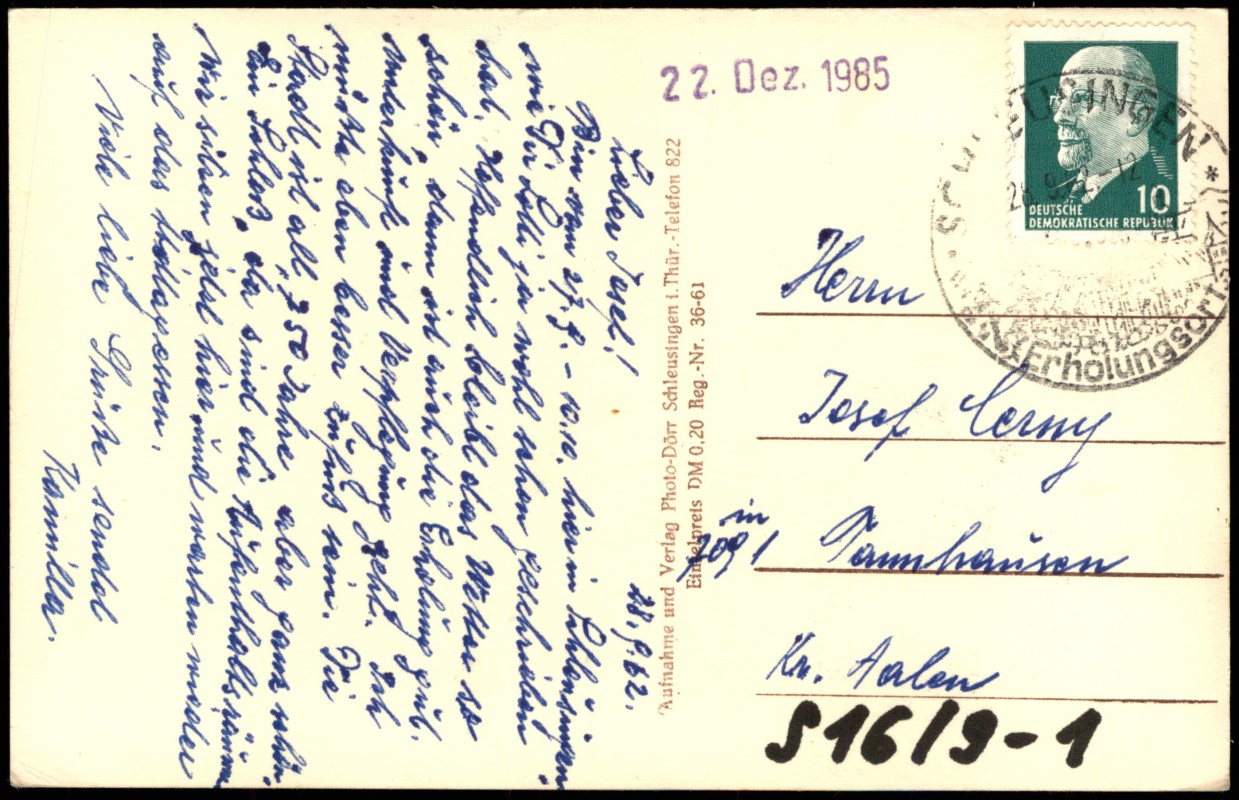 28.9.62.
Lieber Josef!
Bin vom 27.9. – 10.10. hier in Schleusingen
wie Dir Lotti ja wohl schon geschrieben
hat. Hoffendlich bleibt das Wetter so
schön, dann ist auch die Erholung gut.
Unterkunft und Verpflegung geht. Ich
müsste eben besser zu Fuß sein. Die
Stadt ist alt, 750 Jahre aber ganz schön
Ein Schloß, da sind die Aufenthaltsräume
Wir sitzen jetzt hier und warten wieder
auf das Mittagessen.
Viele liebe Grüße sendet
Kamilla.
Aufnahme und Verlag Photo-Dörr Schleusingen i. Thür.-Telefon 822
Einzelpreis DM 0,20 Reg.-Nr. 36-61
22. Dez. 1985
10
DEUTSCHE
DEMOKRATISCHE REPUBLIK
USINGEN
Erholungsort
Herrn
Josef Cerny
in
7091 Tannhausen
Kr. Aalen
S16/9-1